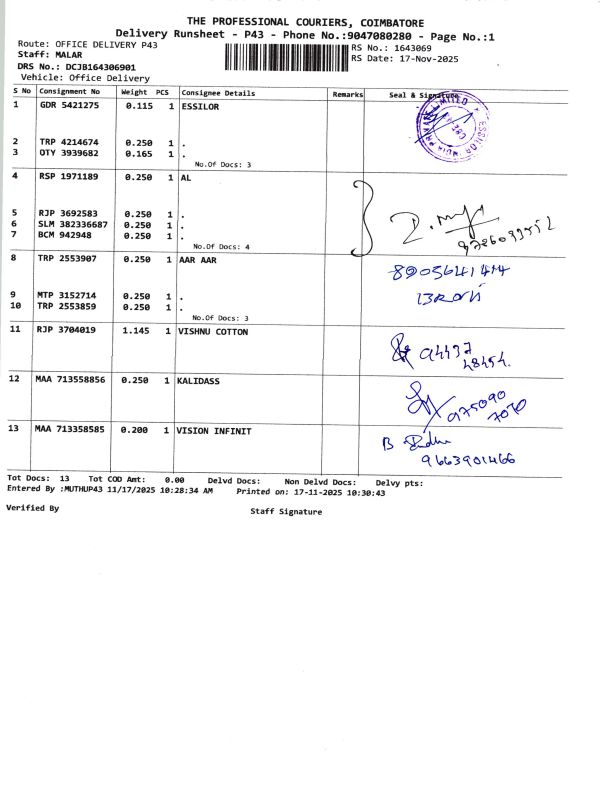 THE PROFESSIONAL COURIERS, COIMBATORE
Delivery Runsheet - P43 - Phone No.:9047080280 - Page No.:1
Route: OFFICE DELIVERY P43
RS No.: 1643069
Staff: MALAR
RS Date: 17-Nov-2025
DRS No.: DCJB164306901
Vehicle: Office Delivery
S No Consignment No Weight PCS Consignee Details Remarks Seal & Signature
1 GDR 5421275 0.115 1 ESSILOR
2 TRP 4214674 0.250 1 .
3 OTY 3939682 0.165 1 .
No.Of Docs: 3
4 RSP 1971189 0.250 1 AL
5 RJP 3692583 0.250 1 .
6 SLM 382336687 0.250 1 .
7 BCM 942948 0.250 1 .
No.Of Docs: 4
8 TRP 2553907 0.250 1 AAR AAR
8905641414
9 MTP 3152714 0.250 1 .
10 TRP 2553859 0.250 1 .
No.Of Docs: 3
11 RJP 3704019 1.145 1 VISHNU COTTON
94437
48454
12 MAA 713558856 0.250 1 KALIDASS
975090
7070
13 MAA 713358585 0.200 1 VISION INFINIT
B
9663901466
Tot Docs: 13 Tot COD Amt: 0.00 Delvd Docs: Non Delvd Docs: Delvy pts:
Entered By :MUTHUP43 11/17/2025 10:28:34 AM Printed on: 17-11-2025 10:30:43
Verified By
Staff Signature